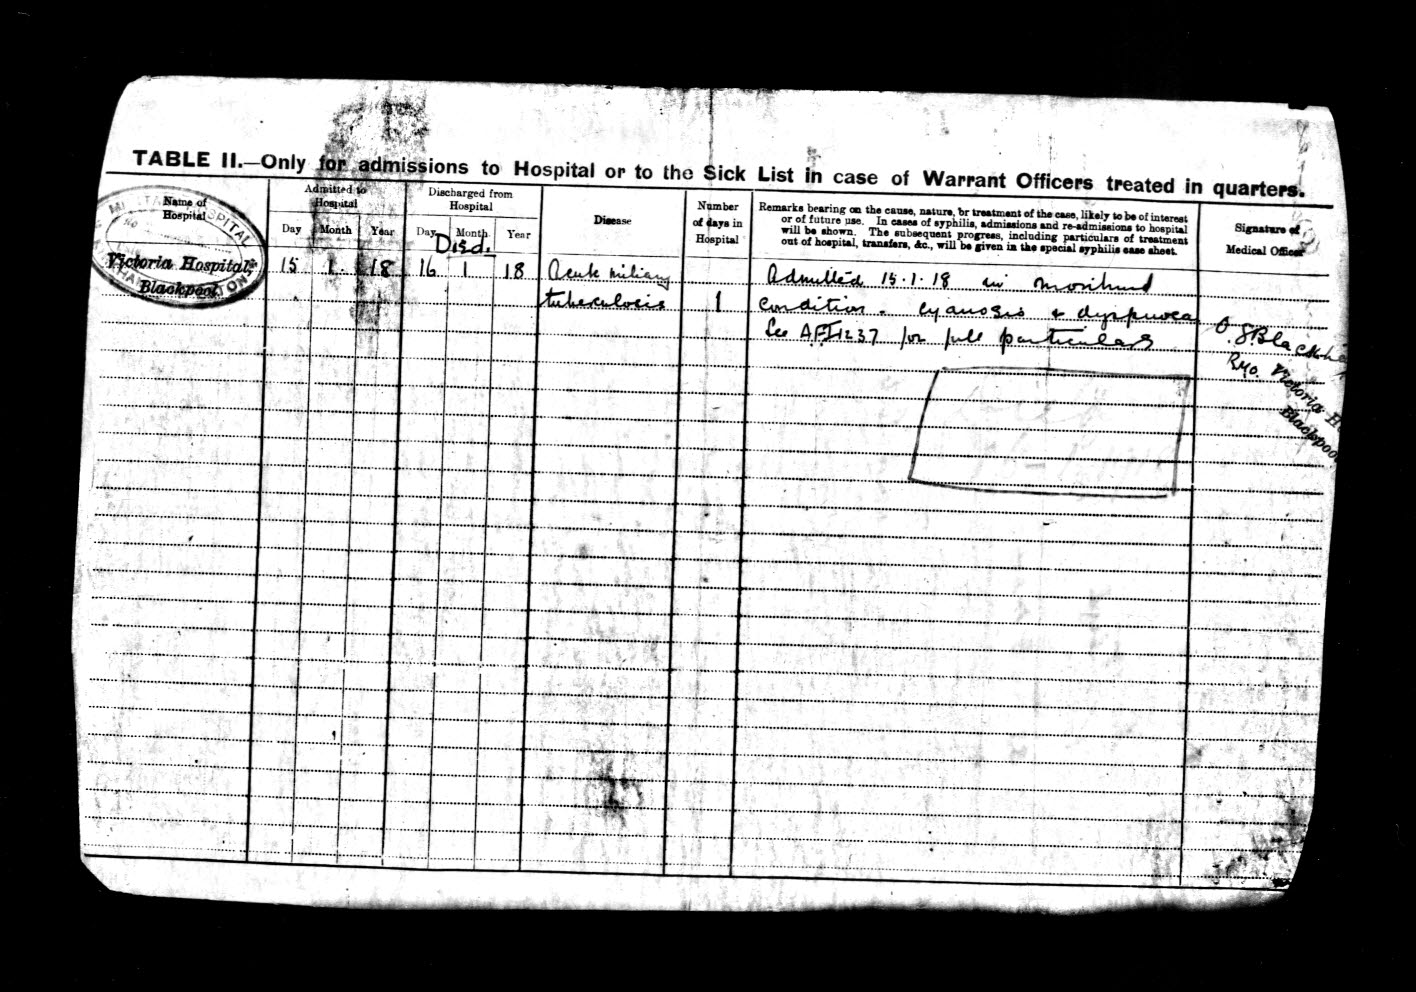 TABLE II.—Only for admissions to Hospital or to the Sick List in case of Warrant Officers treated in quarters.
Name of
Hospital
Admitted to
Hospital
Day Month Year
Discharged from
Hospital
Day Month Year
Disease
Number
of days in
Hospital
Remarks bearing on the cause, nature, or treatment of the case, likely to be of interest
or of future use. In cases of syphilis, admissions and re-admissions to hospital
will be shown. The subsequent progress, including particulars of treatment
out of hospital, transfers, &c., will be given in the special syphilis case sheet.
Signature of
Medical Officer
MILITARY HOSPITAL
Victoria Hospital,
Blackpool
Died.
15 1 18 16 1 18 Acute miliary
tuberculosis 1
Admitted 15.1.18 in moribund
condition. cyanosis & dyspnoea
See AFI1237 for full particulars
RMO. Victoria H
Blackpool